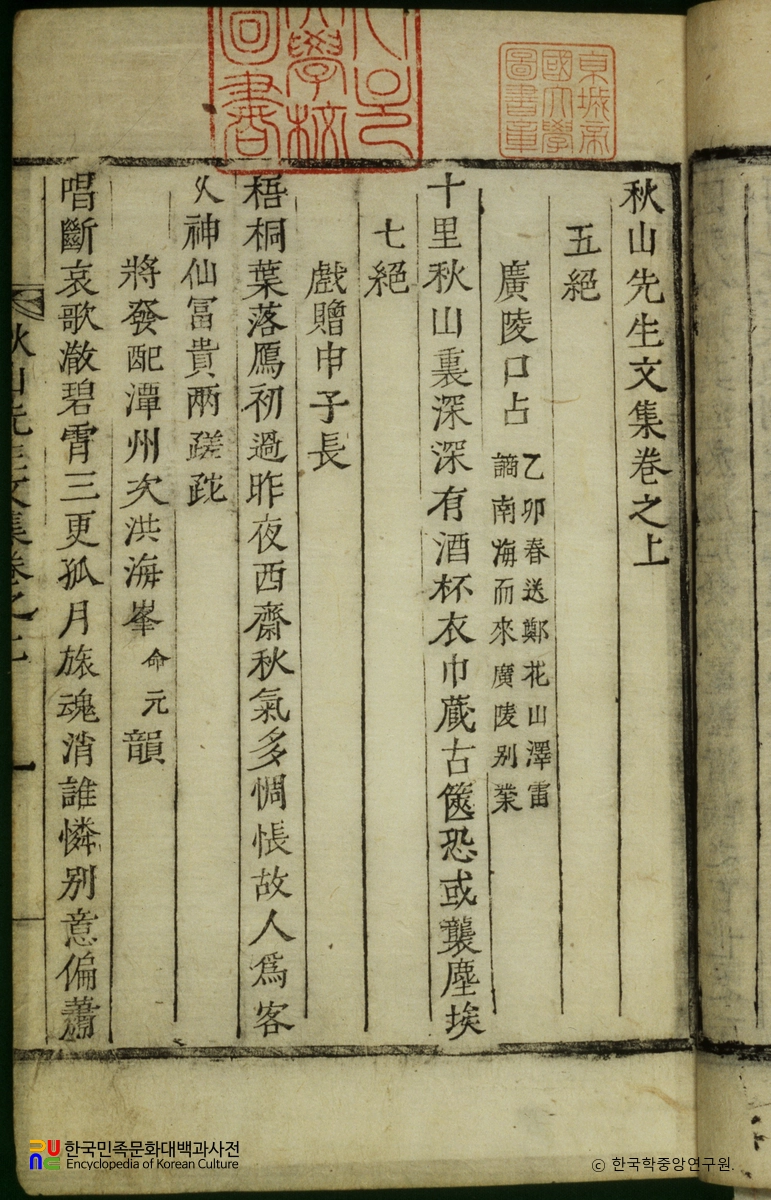 秋山先生文集卷之上
五絕
廣陵口占 乙卯春送鄭花山澤雷
謫南海而來廣陵别業
十里秋山裏深深有酒杯衣巾蔵古篋恐或襲塵埃
七絕
戱贈申子長
梧桐葉落鴈初過昨夜西齋秋氣多惆悵故人爲客
乆神仙冨貴兩蹉跎
將發配潭州次洪海峯 命元 韻
唱斷哀歌澈碧霄三更孤月旅魂消誰憐别意偏蕭
秋山先生文集卷之上 一
京城帝
國大學
圖書章
大學校
圖書
한국민족문화대백과사전
Encyclopedia of Korean Culture
© 한국학중앙연구원.